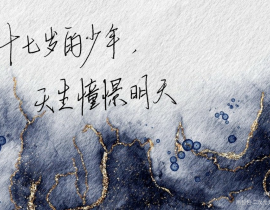 十七岁的少年，
天生憧憬明天